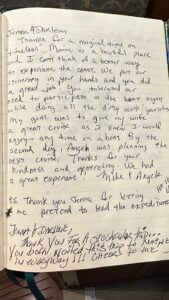 Jenna & 
Thanks for a magical time on
Maine is a beautiful place
and I can't think of a better way
to experience the coast. We put our
itinerary in your hands and you did
a great job. You tolerated our
need to participate in the boat right
while doing all the dirty work yourselves.
My goal was to give my wife
a great cruise as I knew I would
enjoy any time on a boat. By the
second day, Angela was planning the
next cruise. Thanks for your
kindness and generosity. We had
a great experience. Mike & Angela
PS Thank you Jenna for letting
me pretend to lead the expeditions
Thank you for a
you both this trip to Maine
in every way!!! Cheers to the